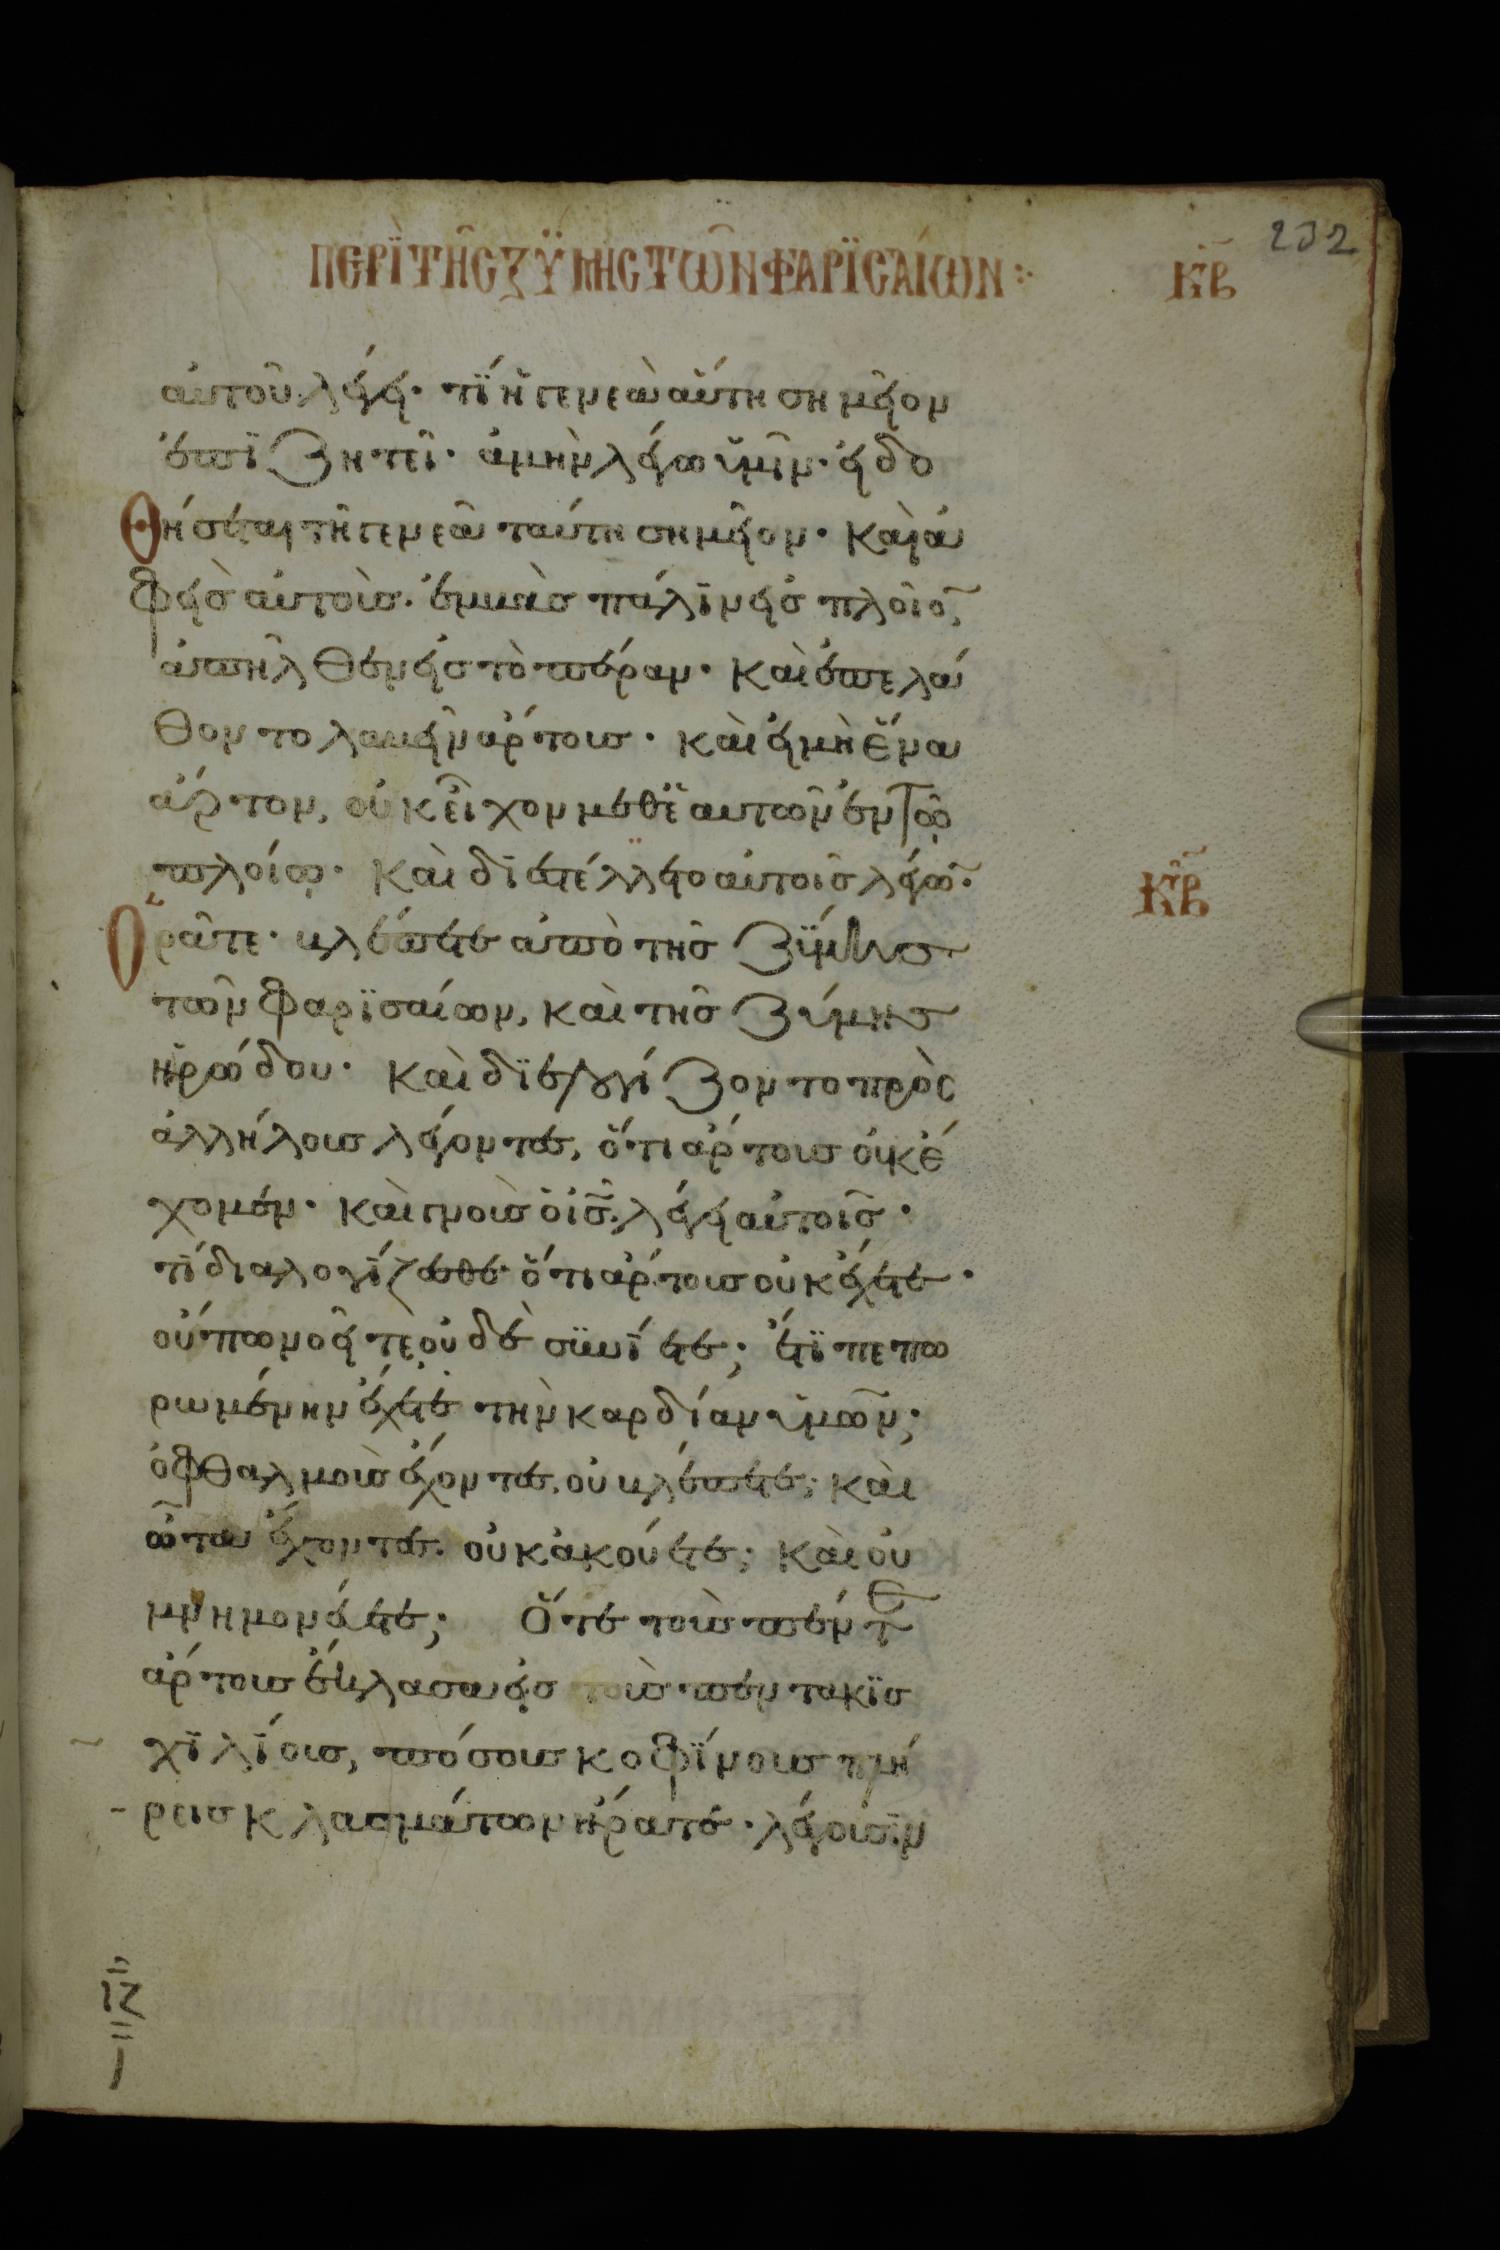 232
ΠΕΡῚ ΤΗ͂Σ ΖΎΜΗΣ ΤΩ͂Ν ΦΑΡΙΣΑΊΩΝ: ΚΒ
αὐτοῦ λέγει· τί ἡ γενεὰ αὕτη σημεῖον
ἐπιζητεῖ· ἀμὴν λέγω ὑμῖν· εἰ δο
θήσεται τῆ γενεᾶ ταύτη σημεῖον· καὶ ἀ
φεὶς αὐτοὺς· ἐμβὰς πάλιν εἰς πλοῖο̅,
ἀπῆλθεν εἰς τὸ πέραν· καὶ ἐπελά
θοντο λαβεῖν ἄρτους· καὶ εἰ μὴ ἕνα
ἄρτον, οὐκ εἶχον μεθ' ἑαυτῶν ἐν τῶ
πλοίω· καὶ διεστέλλετο αὐτοῖς λέγω̅·
Ὁρᾶτε· βλέπετε ἀπὸ τῆς ζύμης
τῶν φαρισαίων, καὶ τῆς ζύμης
ἡρώδου· καὶ διελογίζοντο πρὸς
ἀλλήλους λέγοντες, ὅτι ἄρτους οὐκ ἔ
χομεν· καὶ γνοὺς ὁ ι̅σ̅· λέγει αὐτοῖς·
τί διαλογίζεσθε· ὅτι ἄρτους οὐκ ἔχετε·
οὔπω νοεῖτε οὐδὲ συνίετε; ἔτι πεπω
ρωμένην ἔχετε τὴν καρδίαν ὑμῶν;
ὀφθαλμοὺς ἔχοντες, οὐ βλέπετε; καὶ
ὦτα ἔχοντες· οὐκ ἀκούετε; καὶ οὐ
μνημονεύετε; Ὅτε τοὺς πέντε
ἄρτους ἔκλασα εἰς τοὺς πεντακισ
χιλίους, πόσους κοφίνους πλή
ρεις κλασμάτων ἤρατε· λέγουσιν
ΚΒ
ΙΖ